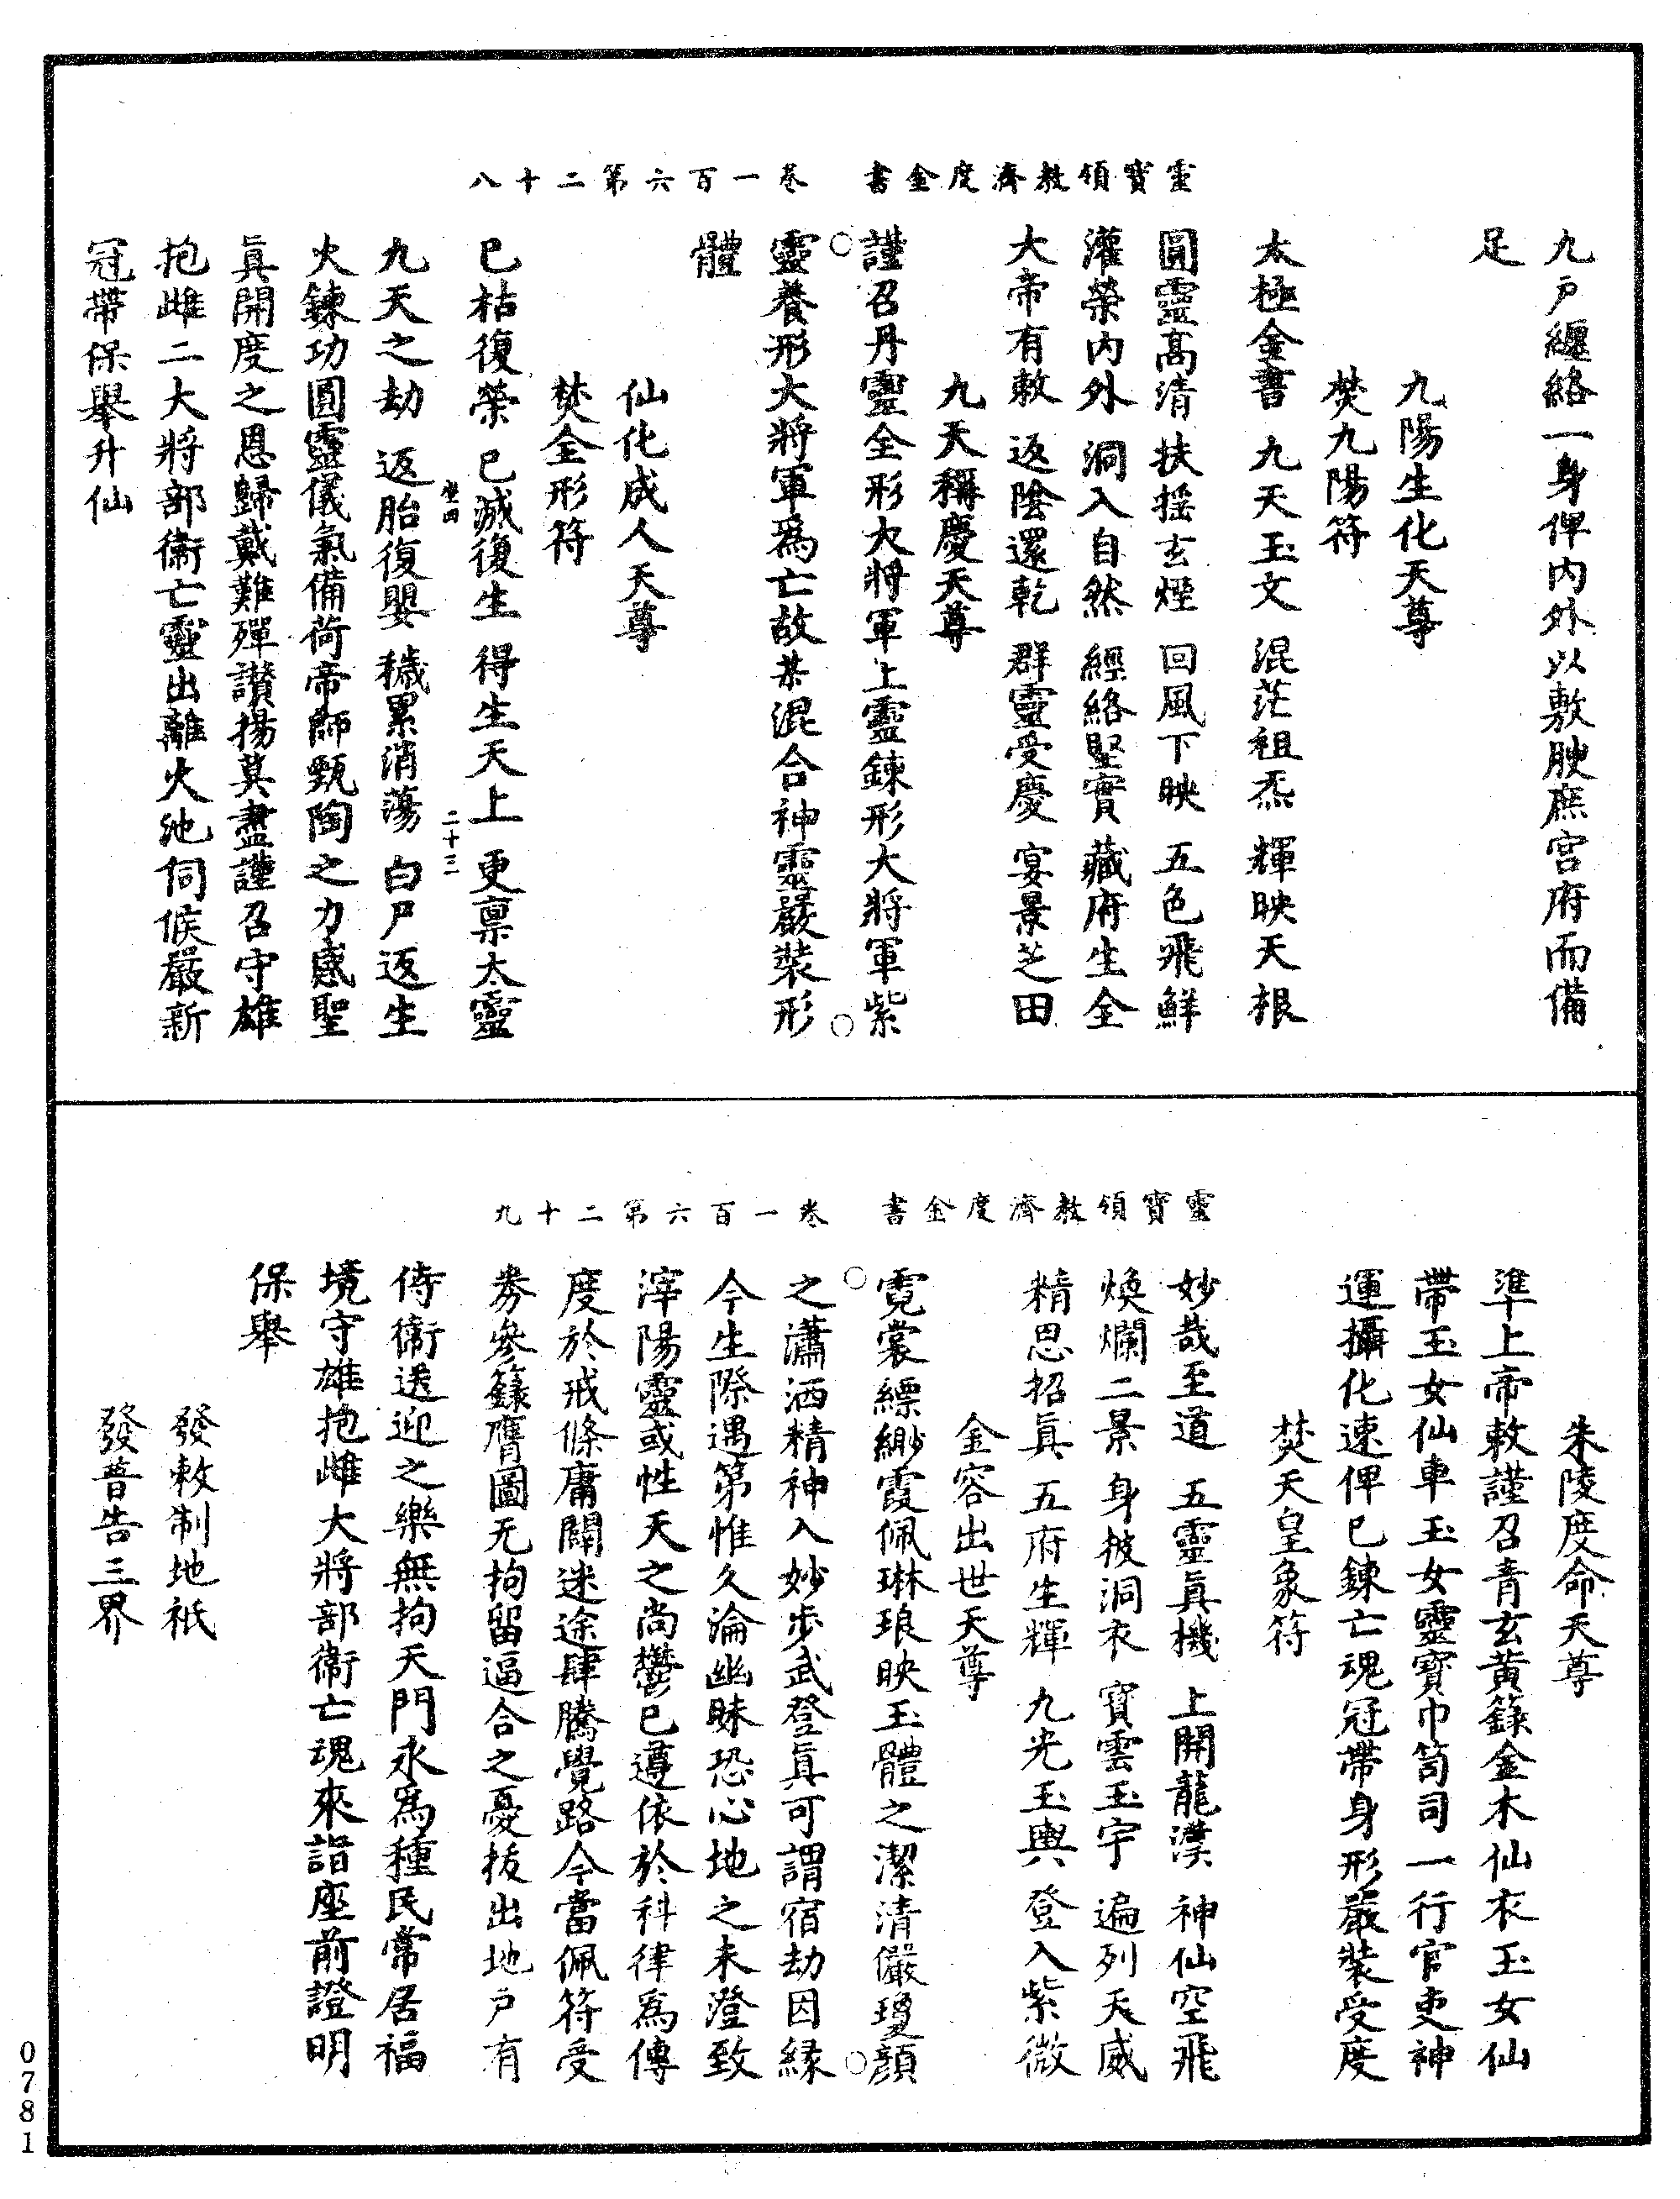 靈寶領教濟度金書　卷一百六第二十八
九戶纏絡一身俾內外以敷腴庶宮府而備
足
九陽生化天尊
焚九陽符
太極金書　九天玉文　混茫祖炁　輝映天根
圓靈高清　扶揺玄煙　回風下映　五色飛鮮
灌榮內外　洞入自然　經絡堅實　藏府生全
大帝有敕　返陰還乾　群靈受慶　宴景芝田
九天稱慶天尊
謹召丹靈全形大將軍上靈鍊形大將軍紫
靈養形大將軍爲亡故某混合神靈嚴裝形
體
仙化成人天尊
焚全形符
已枯復榮　已滅復生　得生天上　更稟太靈
二十三
九天之劫　返胎復嬰　穢累消蕩　白尸返生
火鍊功圓靈儀氣備荷帝師甄陶之力感聖
眞開度之恩歸戴難殫讚揚莫盡謹召守雄
抱雌二大將部衞亡靈出離火池伺候嚴新
冠帶保舉升仙
靈寶領教濟度金書　卷一百六第二十九
朱陵度命天尊
準上帝敕謹召青玄黄籙金木仙衣玉女仙
帶玉女仙車玉女靈寶巾笥司一行官吏神
運攝化速俾已鍊亡魂冠帶身形嚴裝受度
焚天皇象符
妙哉至道　五靈眞機　上開龍漢　神仙空飛
煥爛二景　身披洞衣　寶雲玉宇　遍列天威
精思招眞　五府生輝　九光玉輿　登入紫微
金容出世天尊
霓裳縹緲霞佩琳琅映玉體之潔清儼瓊顔
之瀟洒精神入妙步武登眞可謂宿劫因緣
今生際遇第惟久淪幽昧恐心地之未澄致
滓陽靈或性天之尚鬱已遵依於科律爲傳
度於戒條庸闢迷途肆騰覺路今當佩符受
券參籙膺圖无拘留逼合之憂拔出地戶有
侍衞送迎之樂無拘天門永爲種民常居福
境守雄抱雌大將部衞亡魂來詣座前證明
保舉
發敕制地祇
發普告三界
0781